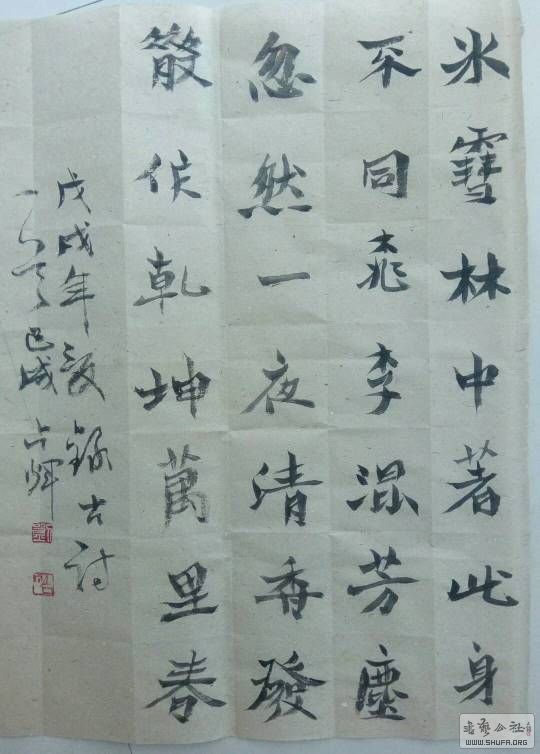 氷雪林中著此身
不同桃李混芳塵
忽然一夜清香發
散作乾坤萬里春
戊戌年錄古詩
一占輝
书艺公社
WWW.SHUFA.ORG